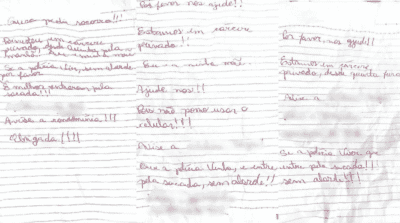 peço socorro!!!
Estamos em cárcere
privado,
Se a polícia vier, sem alarde
por favor
É melhor entrarem pela
sacada!!!
Avise a condomínio!!!
Obrigada!!!!
Por favor nos ajude!!
Estamos em cárcere
privado!!
Eu e a minha mãe.
Ajude nos!!
Eu não posso usar o
celular!!!
Avise a
Que a polícia venha, e entre
pela sacada, sem alarde!!
Por favor, nos ajude!!
Estamos em cárcere,
privado, desde quinta feira
Avise a
Se a polícia vier, que
entre pela sacada!!!
sem alarde!!!